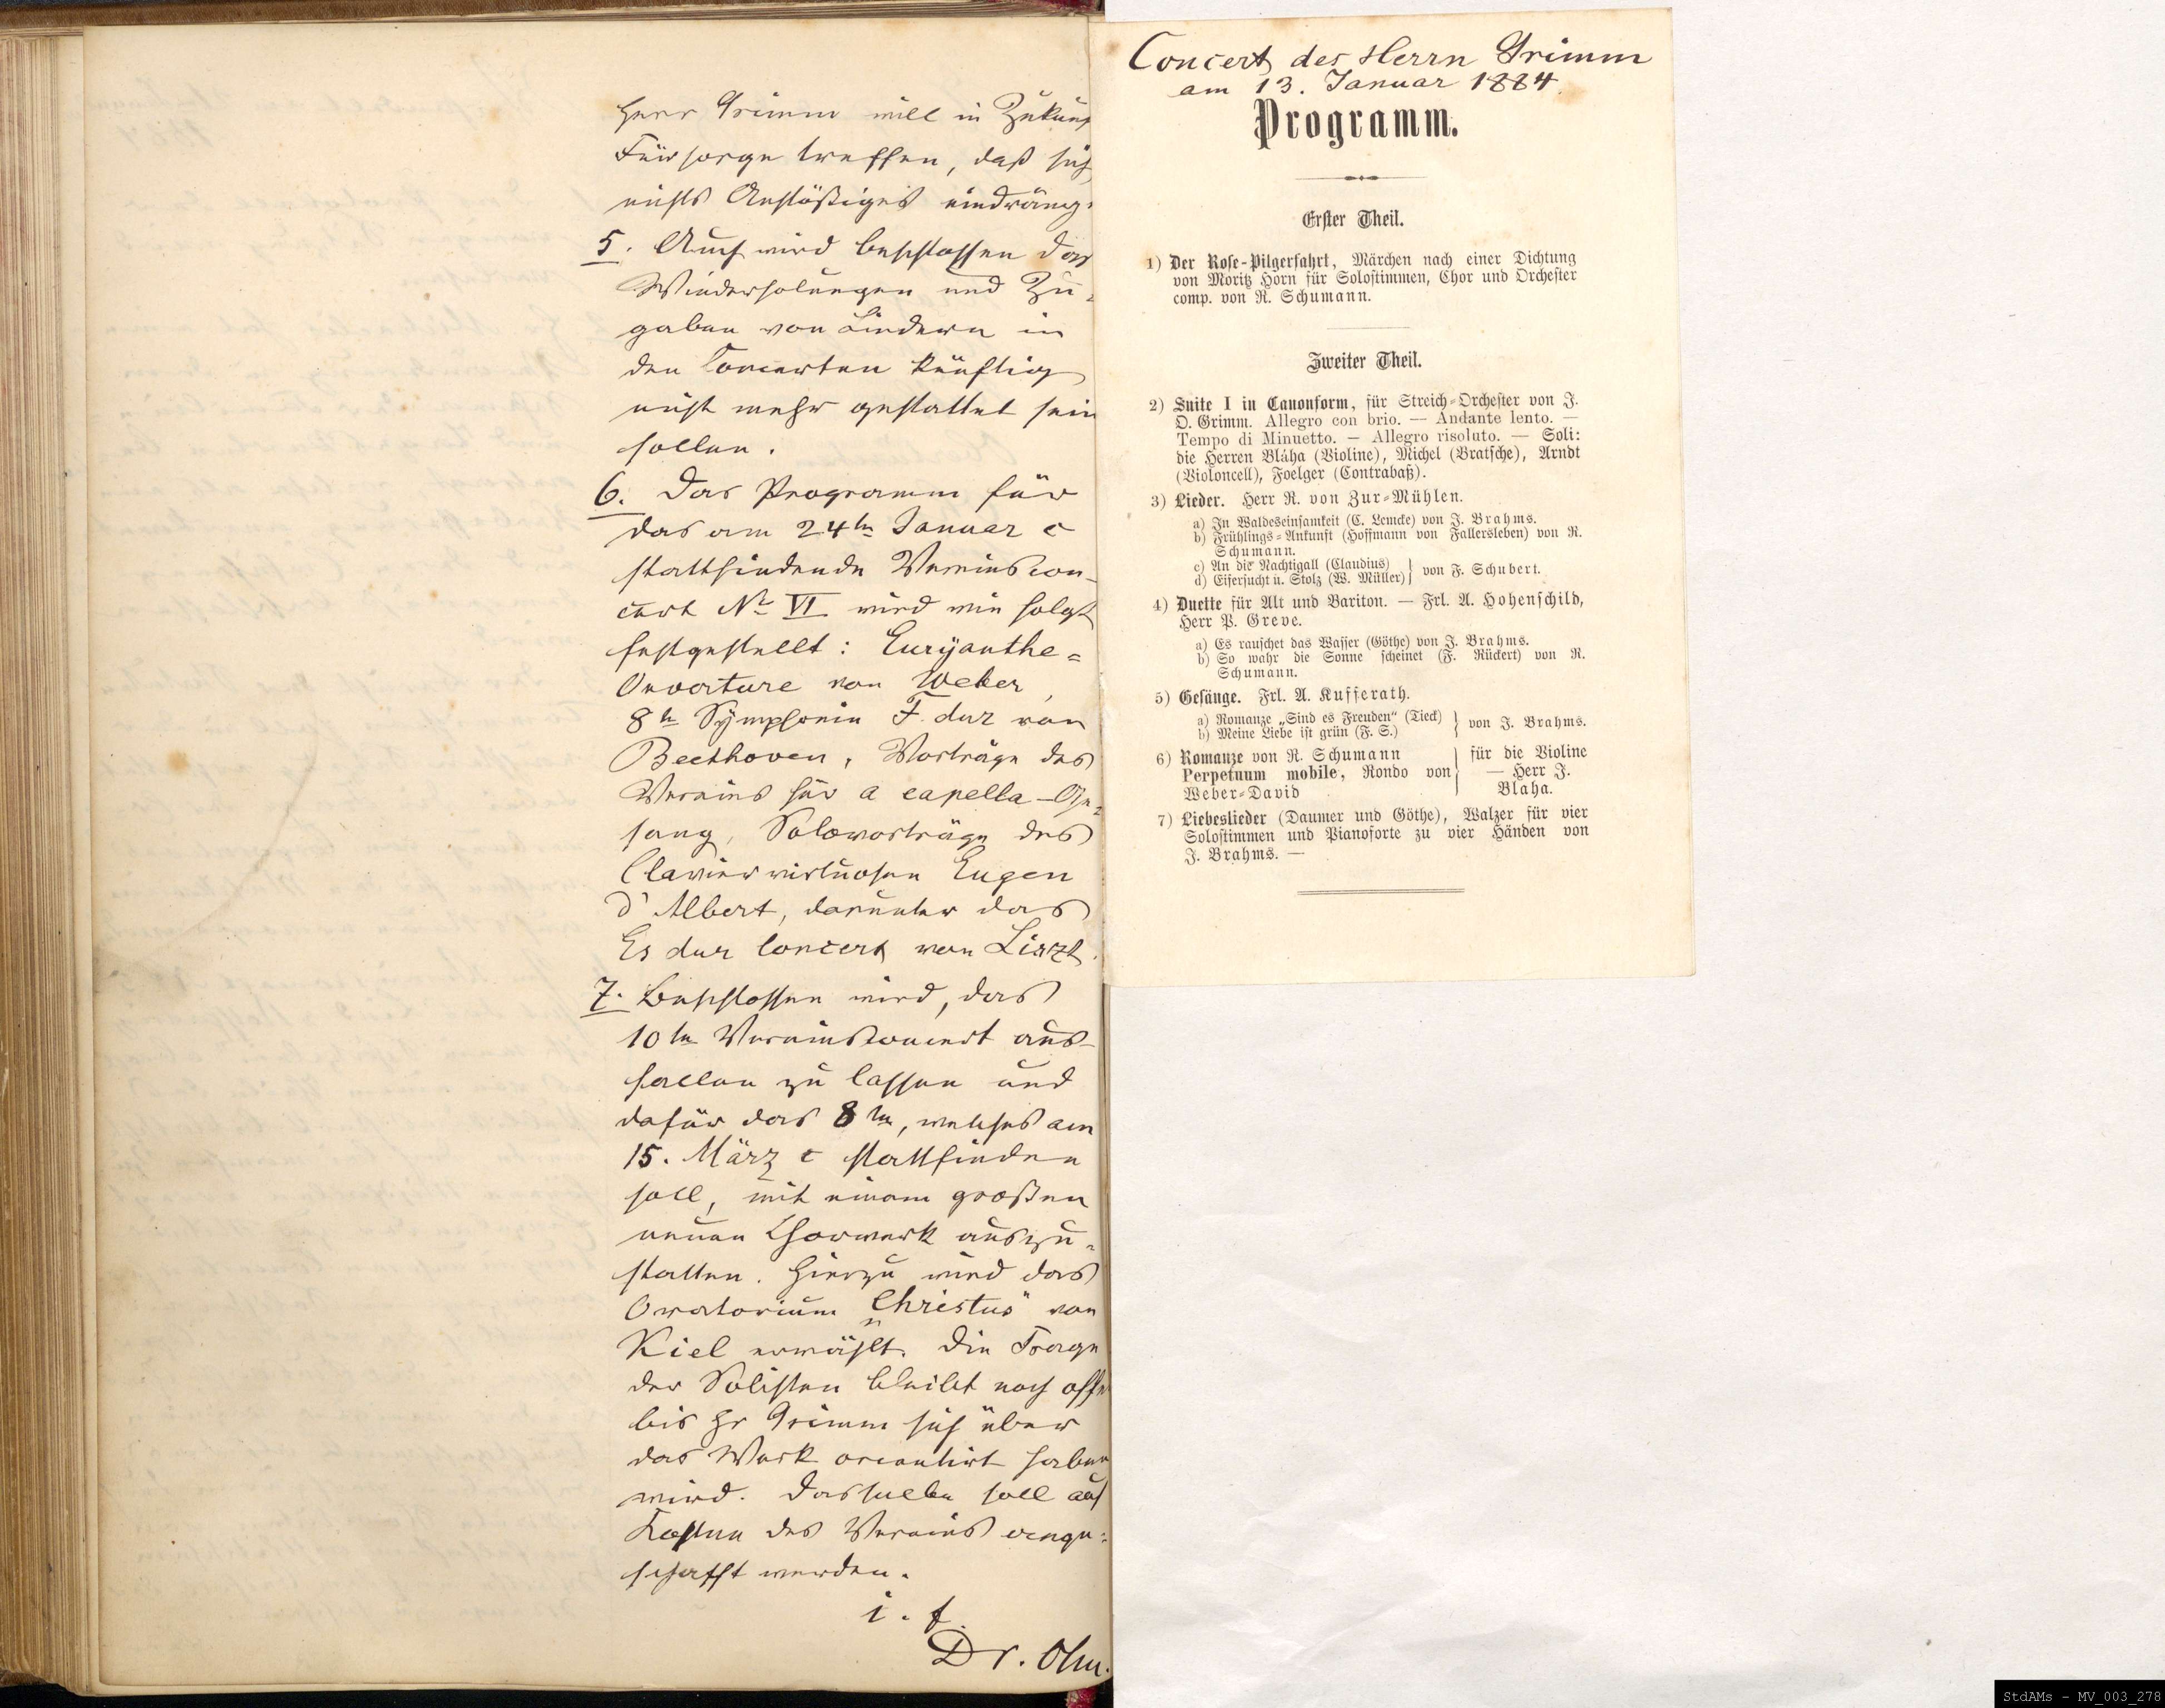 Herr Grimm will in Zukunf
Fürsorge treffen, daß sich
nichts Anstößiges eindräng
5. Auch wird beschlossen das
Wiederholungen und Zu-
gaben von Liedern in
den Concerten künftig
nicht mehr gestattet sein
sollen.
6. Das Programm für
das am 24ten Januar c
stattfindende Vereinscon-
cert No VI wird wie folgt
festgestellt: Euryanthe=
Ouverture von Weber,
8te Symphonie F. dur von
Beethoven, Vorträge des
Vereins für a capella-Ge-
sang, Solovorträge des
Claviervirtuosen Eugen
d'Albert, darunter das
Es dur Concert von Liszt.
7. Beschlossen wird, das
10te Vereinsconcert aus-
fallen zu lassen und
dafür das 8te, welches am
15. März c stattfinden
soll, mit einem großen
neuen Chorwerk auszu-
statten. Hierzu wird das
Oratorium „Christus“ von
Kiel erwählt. Die Frage
der Solisten bleibt noch offe
bis Hr Grimm sich über
das Werk orientirt haben
wird. Dasselbe soll auf
Kosten des Vereins ange-
schafft werden.
i. f.
Dr. Ohm.
Concert des Herrn Grimm
am 13. Januar 1884.
Programm.
Erster Theil.
1) Der Rose-Pilgerfahrt, Märchen nach einer Dichtung
von Moritz Horn für Solostimmen, Chor und Orchester
comp. von R. Schumann.
Zweiter Theil.
2) Suite I in Canonform, für Streich-Orchester von J.
O. Grimm. Allegro con brio. — Andante lento. —
Tempo di Minuetto. — Allegro risoluto. — Soli:
die Herren Bláha (Violine), Michel (Bratsche), Arndt
(Violoncell), Foelger (Contrabaß).
3) Lieder. Herr R. von Zur-Mühlen.
a) In Waldeseinsamkeit (C. Lemcke) von J. Brahms.
b) Frühlings-Ankunft (Hoffmann von Fallersleben) von R.
Schumann.
c) An die Nachtigall (Claudius)
d) Eifersucht u. Stolz (W. Müller) } von F. Schubert.
4) Duette für Alt und Bariton. — Frl. A. Hohenschild,
Herr P. Greve.
a) Es rauschet das Wasser (Göthe) von J. Brahms.
b) So wahr die Sonne scheinet (F. Rückert) von R.
Schumann.
5) Gesänge. Frl. A. Kufferath.
a) Romanze „Sind es Freuden“ (Tieck)
b) Meine Liebe ist grün (F. S.) } von J. Brahms.
6) Romanze von R. Schumann
Perpetuum mobile, Rondo von
Weber-David } für die Violine
— Herr J.
Blaha.
7) Liebeslieder (Daumer und Göthe), Walzer für vier
Solostimmen und Pianoforte zu vier Händen von
J. Brahms. —
StdAMs - MV_003_278